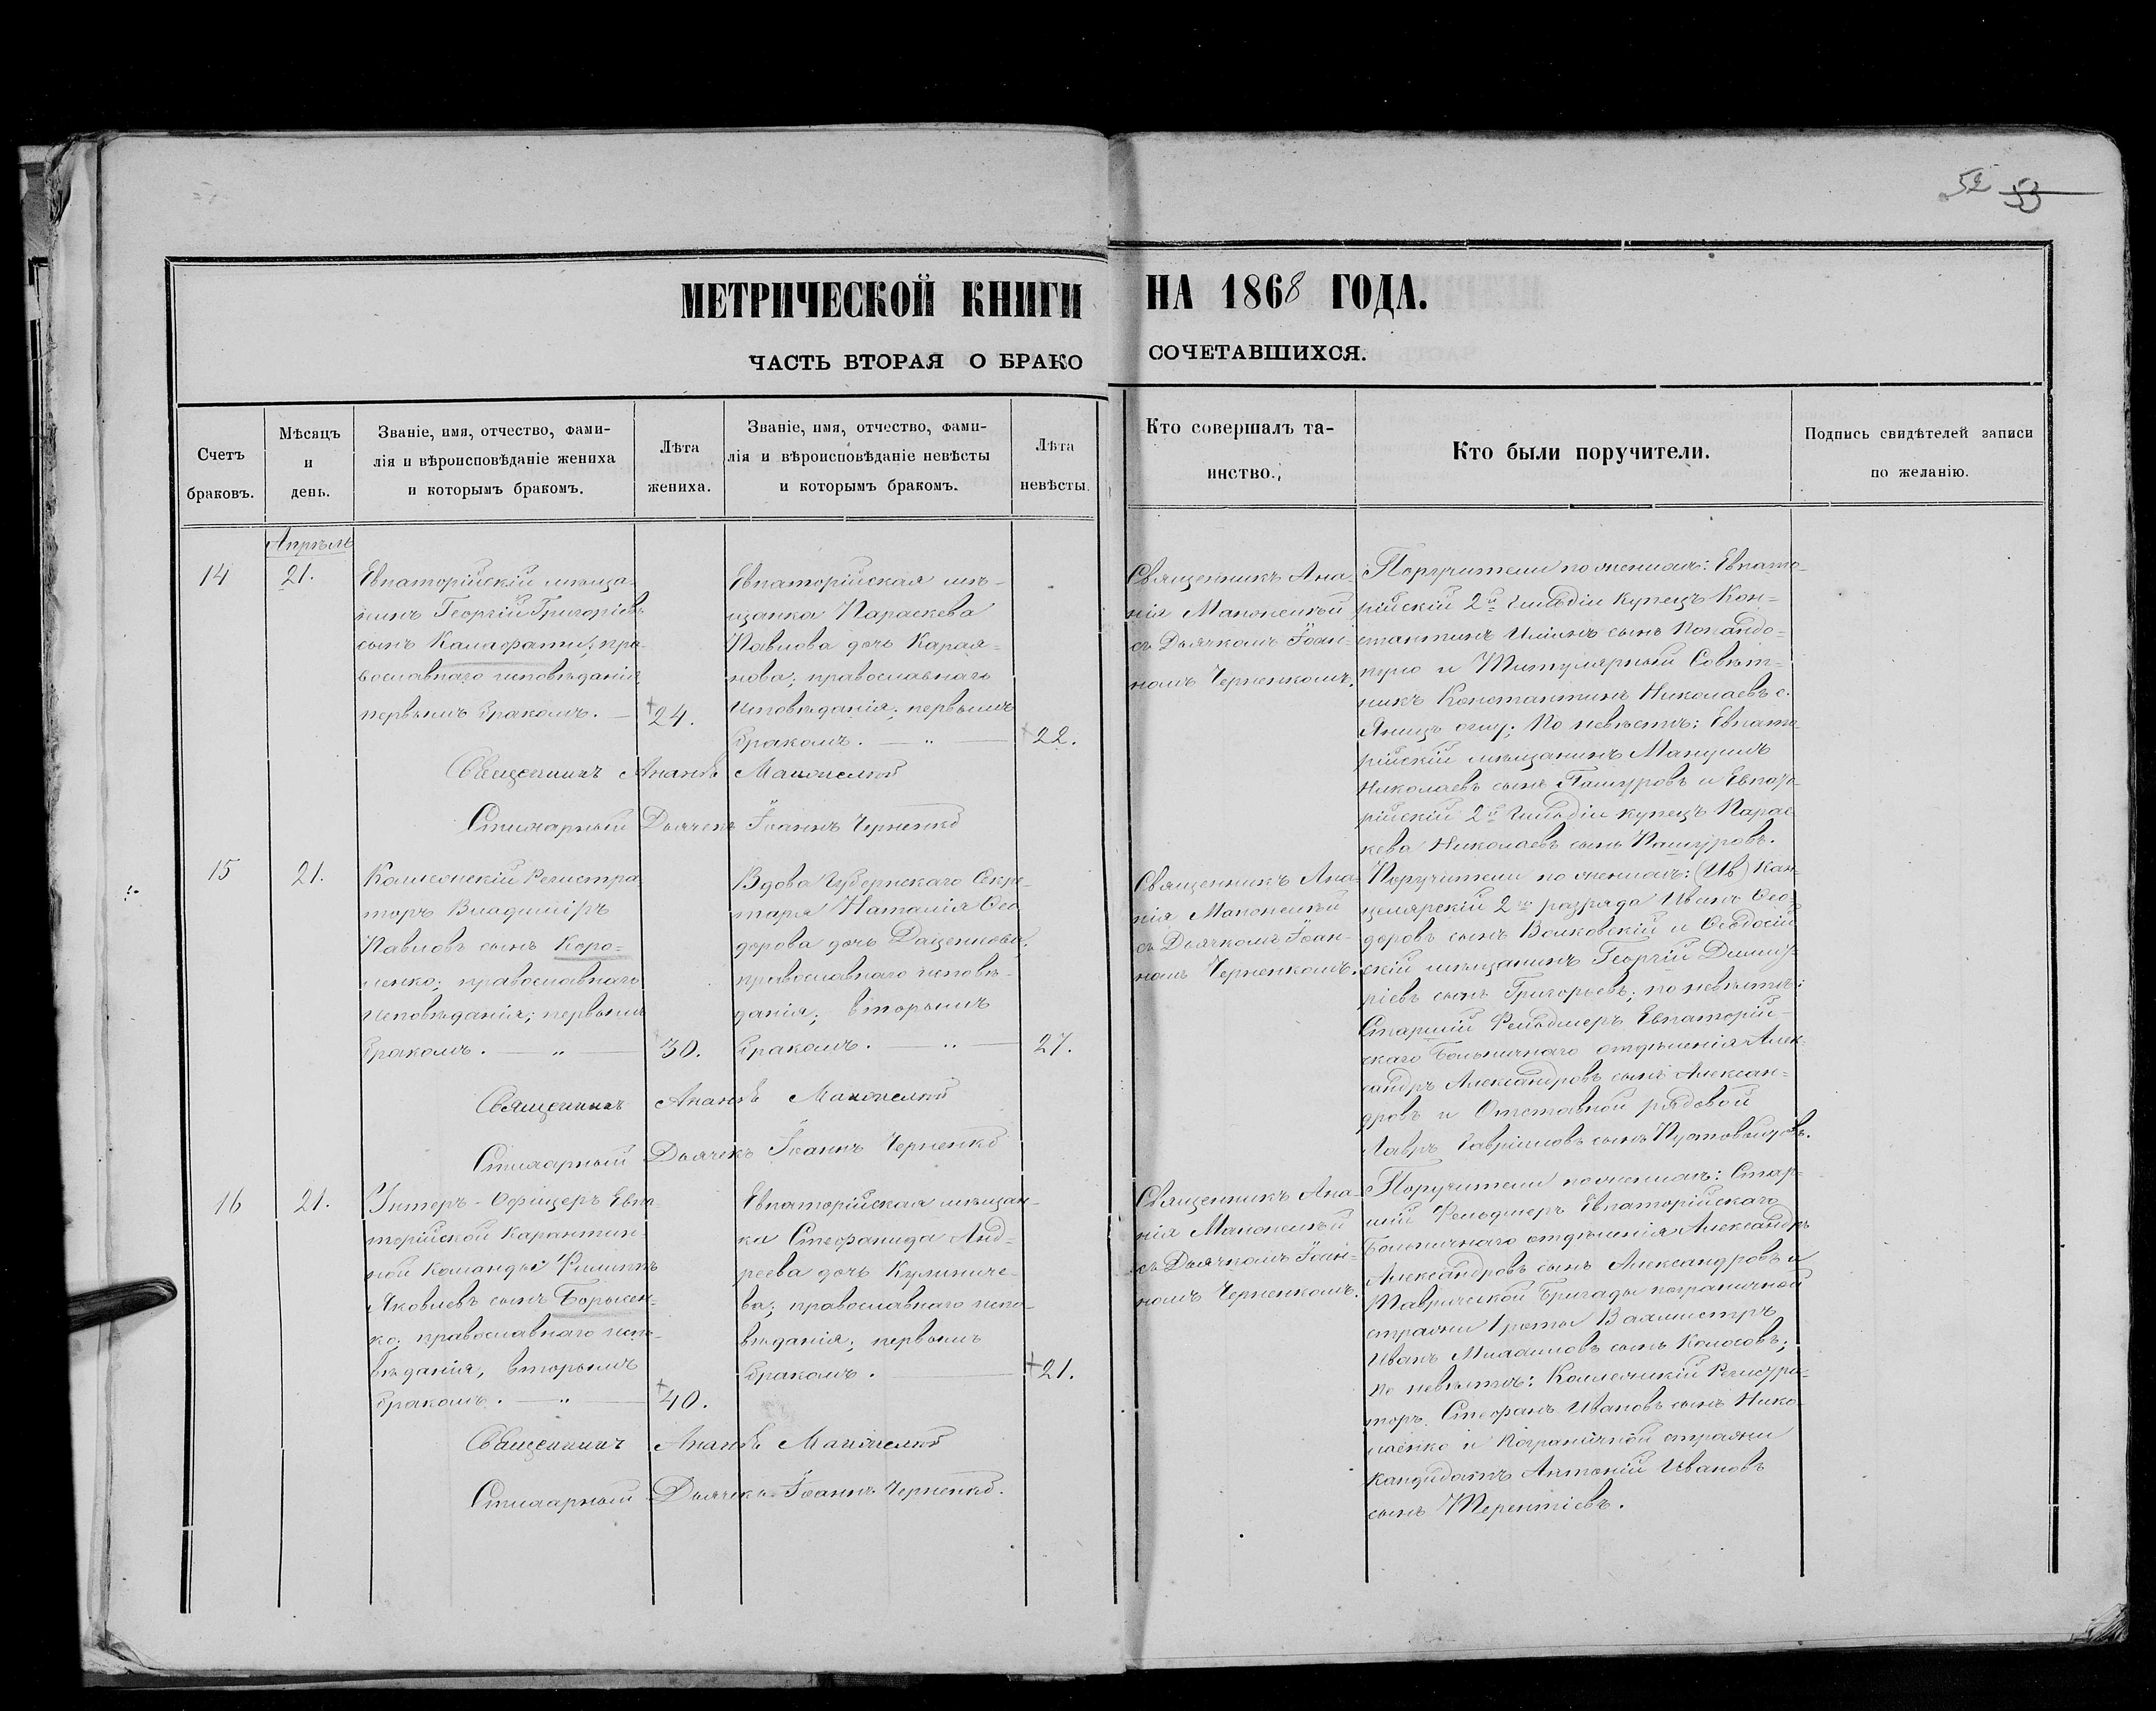 52 53
МЕТРИЧЕСКОЙ КНИГИ НА 1868 ГОДА.
ЧАСТЬ ВТОРАЯ О БРАКО СОЧЕТАВШИХСЯ.
Счетъ браковъ.
Мѣсяцъ и день.
Званіе, имя, отчество, фами-
лія и вѣроисповѣданіе жениха
и которымъ бракомъ.
Лѣта жениха.
Званіе, имя, отчество, фами-
лія и вѣроисповѣданіе невѣсты
и которымъ бракомъ.
Лѣта невѣсты.
Кто совершалъ та-
инство.
Кто были поручители.
Подпись свидѣтелей записи
по желанію.
Апрѣль
14
21.
Евпаторійскій мѣща-
нинъ Георгій Григоріевъ
сынъ Каламфати; пра-
вославнаго исповѣданія,
первымъ бракомъ. —
24.
Евпаторійская мѣ-
щанка Параскева
Павлова дочь Карая-
нова; православнаго
исповѣданія; первымъ
бракомъ. — „ —
22.
Священникъ Ана-
нія
съ Дьячкомъ Іоан-
номъ Черненкомъ.
Поручители по женихѣ: Евпато-
рійскій 2й гильдіи купецъ Кон-
стантинъ Ильинъ сынъ
и Титулярный Совѣт-
никъ Константинъ Николаевъ с.
По невѣстѣ: Евпато-
рійскій мѣщанинъ Мануилъ
Николаевъ сынъ Пашуровъ и Евпато-
рійскій 2й гильдіи купецъ Парас-
кева Николаевъ сынъ Пашуровъ.
Священникъ Ананія
Стихарный Дьячекъ Іоаннъ Черненко
15
21.
Коллежскій Регистра-
торъ Владиміръ
Павловъ сынъ Коро-
ленко; православнаго
исповѣданія; первымъ
бракомъ. — „ —
30.
Вдова Губернскаго Секре-
таря Наталія Ѳео-
дорова дочь Даценкова;
православнаго исповѣ-
данія; вторымъ
бракомъ. — „ —
27.
Священникъ Ана-
нія
съ Дьячкомъ Іоан-
номъ Черненкомъ.
Поручители по женихѣ: (Ив) Кан-
целярскій 2го разряда Иванъ Ѳео-
доровъ сынъ Волковскій и Ѳеодосій-
скій мѣщанинъ Георгій Димит-
ріевъ сынъ Григорьевъ; по невѣстѣ:
Старшій Фельдшеръ Евпаторій-
скаго Больничнаго отдѣленія Алек-
сандръ Александровъ сынъ Алексан-
дровъ и Отставной рядовой
Лавръ Гавріиловъ сынъ
Священникъ Ананія
Стихарный Дьячекъ Іоаннъ Черненко
16
21.
Унтеръ-Офицеръ Евпа-
торійской Карантин-
ной Команды Филиппъ
Яковлевъ сынъ Борисен-
ко; православнаго испо-
вѣданія; вторымъ
бракомъ. — „ —
40.
Евпаторійская мѣщан-
ка Стефанида Анд-
реева дочь Кулиниче-
ва; православнаго испо-
вѣданія; первымъ
бракомъ. —
21.
Священникъ Ана-
нія
съ Дьячкомъ Іоан-
номъ Черненкомъ.
Поручители по женихѣ: Стар-
шій Фельдшеръ Евпаторійскаго
Больничнаго отдѣленія Александръ
Александровъ сынъ Александровъ и
Таврической бригады пограничной
стражи 1 роты Вахмистръ
Иванъ Михаиловъ сынъ Колосовъ;
по невѣстѣ: Коллежскій Регистра-
торъ Стефанъ Ивановъ сынъ Нико-
лаенко и Пограничной стражи
Кандидатъ Антоній Ивановъ
сынъ Терентіевъ.
Священникъ Ананія
Стихарный Дьячекъ Іоаннъ Черненко.